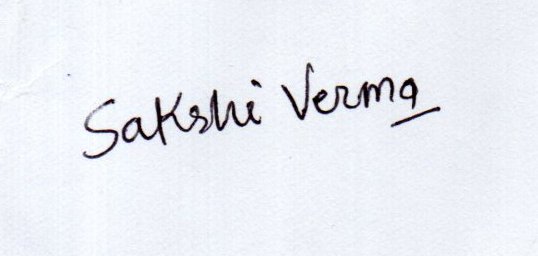 Sakshi Verma